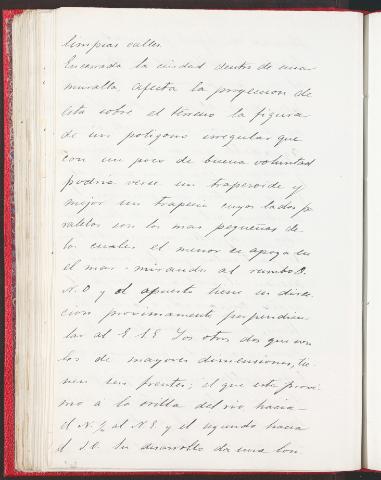 limpias calles.
Encerrada la ciudad dentro de una
muralla afecta la proyeccion de
esta sobre el terreno la figura
de un poligono irregular que
con un poco de buena voluntad
podria verse un trapezoide y
mejor un trapecio cuyos lados pa
ralelos son los mas pequeños de
los cuales el menor se apoya en
el mar mirando al rumbo O.
N.O y el opuesto tiene su direc-
cion proximamente perpendicu
lar al E S E Los otros dos que son
los de mayores dimensiones, tie
nen sus frentes; el que esta proxi
mo a la orilla del rio, hacia
el N. ½ al N E y el segundo hacia
el S.O. Su desarrollo da una lon